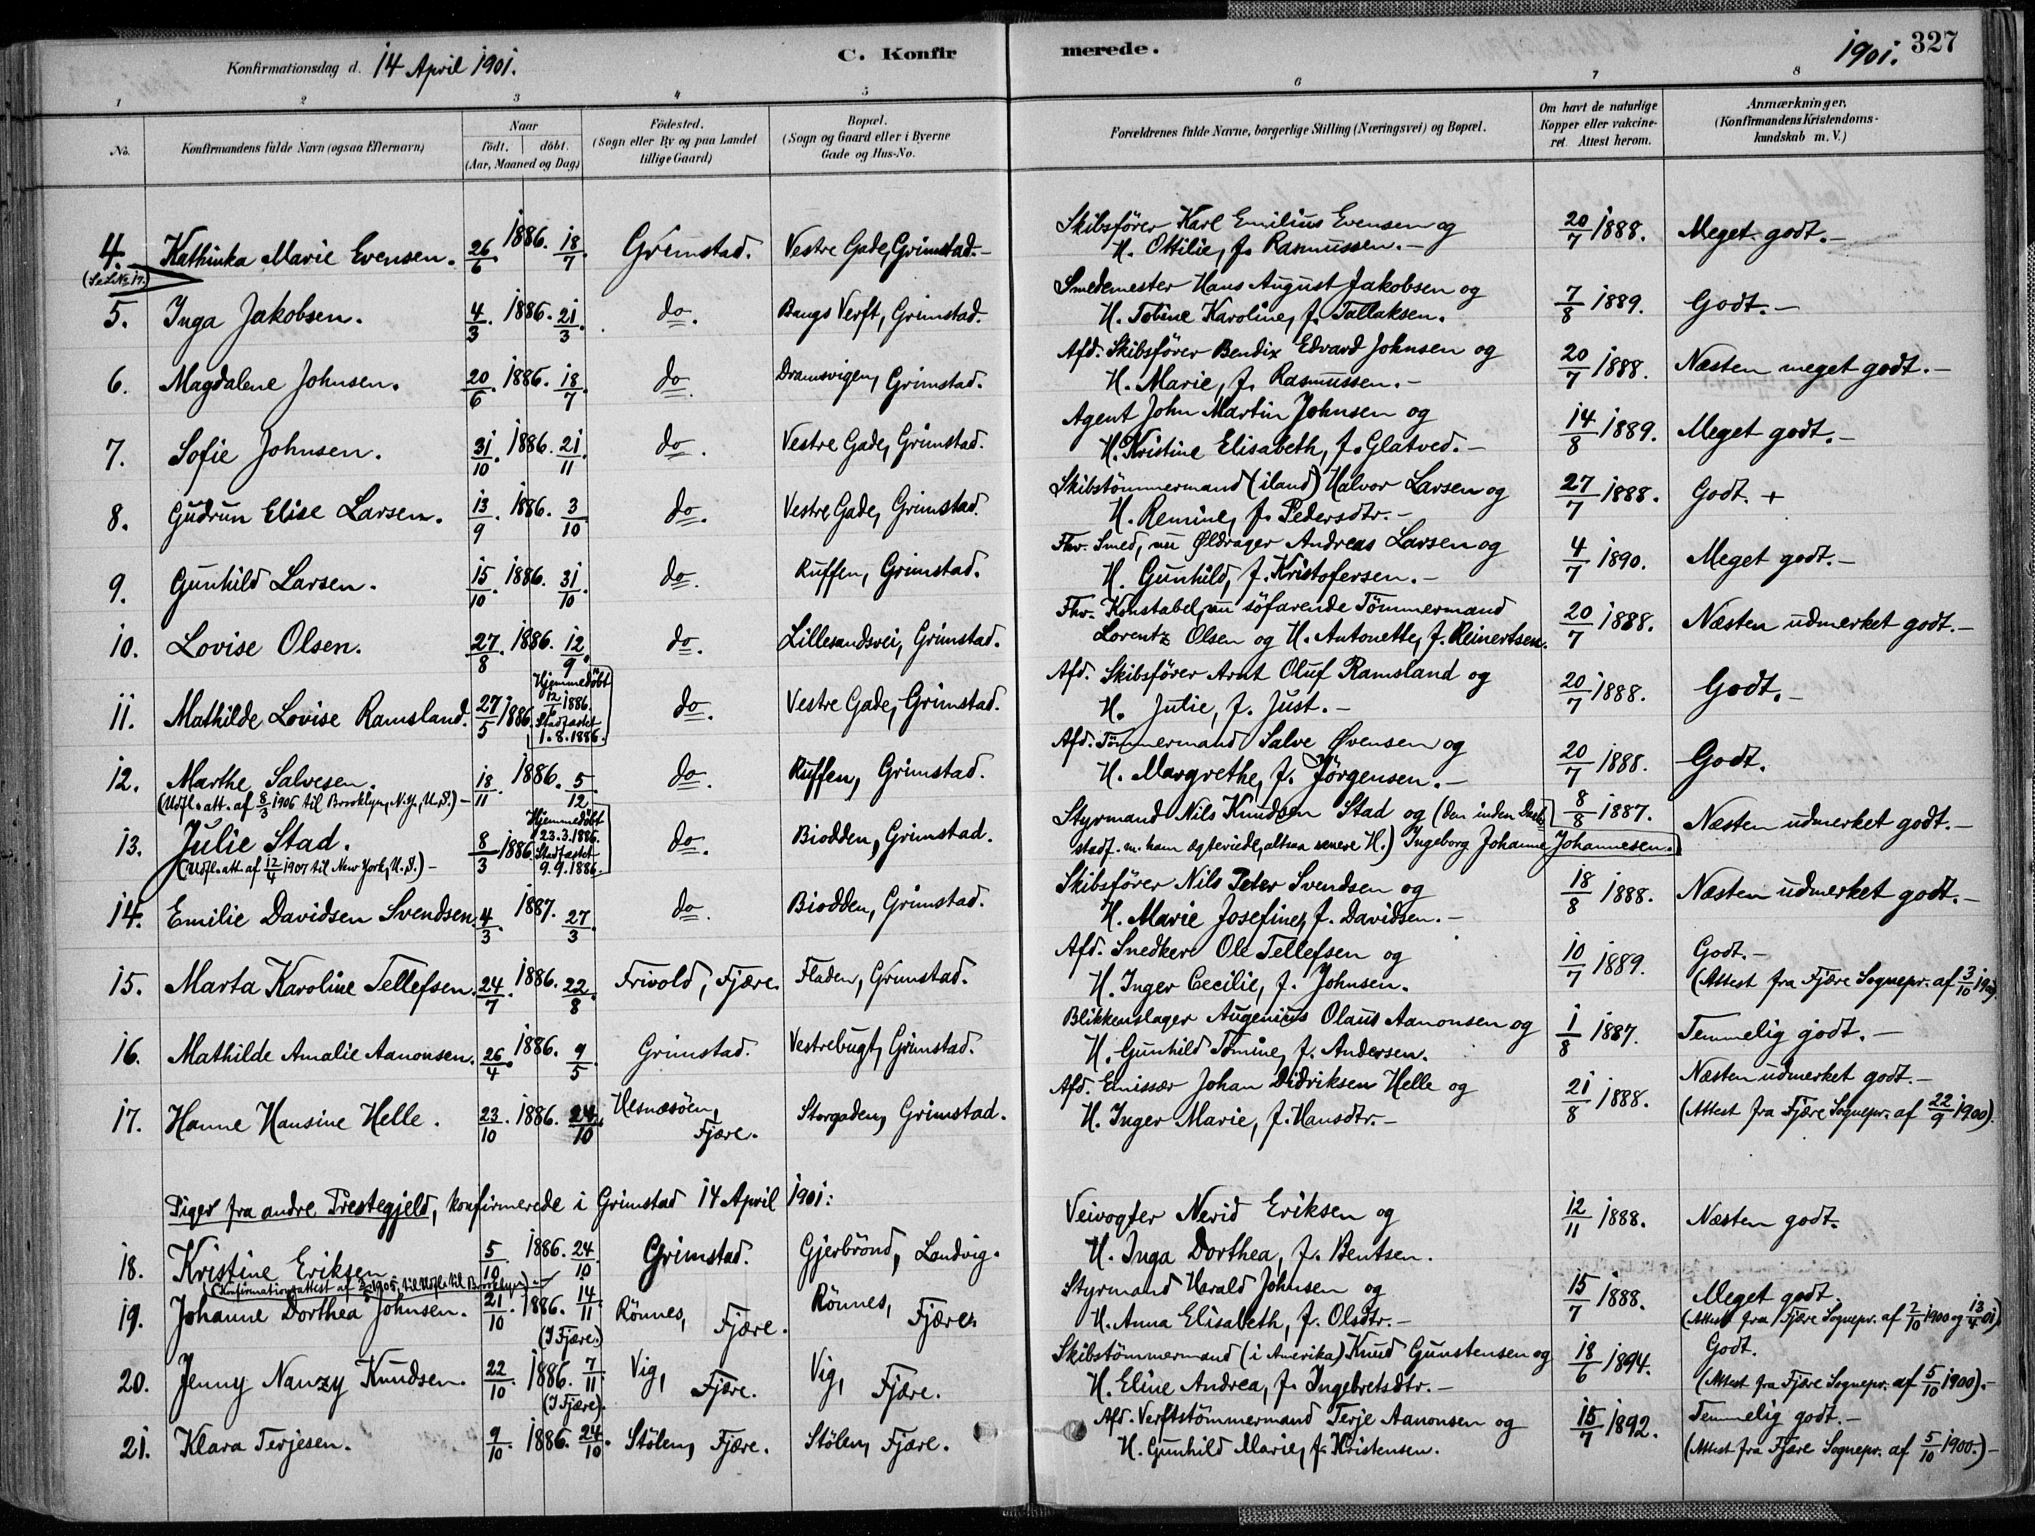 Konfirmationsdag d. 14 April 1901. C. Konfirmerede. 1901. 327
1 2 3 4 5 6 7 8
No. Konfirmandens fulde Navn (ogsaa Efternavn) Naar født. døbt. (Aar, Maaned og Dag) Födested. (Sogn eller By og paa Landet tillige Gaard) Bopæl. (Sogn og Gaard eller i Byerne Gade og Hus-No. Forældrenes fulde Navne, borgerlige Stilling (Næringsvei) og Bopæl. Om havt de naturlige Kopper eller vakcineret. Attest herom. Anmærkninger. (Konfirmandens Kristendomskundskab m. V.)
4. Kathinka Marie Evensen. 26/6. 1886. 18/7 Grimstad. Vestre Gade, Grimstad.- Skibsfører Karl Emilius Evensen og 20/7 1888. Meget godt.-
H. Ottilie, f. Rasmussen.-
5. Inga Jakobsen. 4/3. 1886. 21/3. do. Bangs Verft, Grimstad. Smedemester Hans August Jakobsen og 7/8 1889. Godt.-
H. Tobine Karoline, f. Tallaksen.
6. Magdalene Johnsen. 20/6 1886. 18/7. do Dramsvigen, Grimstad. Afd. Skibsfører Bendix Edvard Johnsen og 20/7 1888. Næsten meget godt.-
H. Marie, f. Rasmussen.-
7. Sofie Johnsen. 31/10. 1886. 21/11. do. Vestre Gade, Grimstad. Agent John Martin Johnsen og 14/8 1889. Meget godt.-
H. Kristine Elisabeth, f. Glatved.-
8. Gudrun Elise Larsen. 13/9. 1886. 3/10 do. Vestre Gade, Grimstad. Skibstömmermand (iland) Halvor Larsen og 27/7 1888. Godt. +
H. Remine, f. Pedersdtr.-
9. Gunhild Larsen. 15/10. 1886. 31/10. do. Ruffen, Grimstad. Fhv. Smed, nu Øldrager Andreas Larsen og 4/7 1890. Meget godt.-
H. Gunhild, f. Kristofersen.-
10. Lovise Olsen. 27/8. 1886. 12/9. do. Lillesandsvei, Grimstad. Fhv. Konstabel, nu söfarende Tömmermand 20/7 1888. Næsten udmerket godt.-
Lorentz Olsen og H. Antonette, f. Reinertsen.
11. Mathilde Lovise Ramsland. 27/5 1886. Hjemmedøbt 12/6 1886. Stadfæstet 1.8.1886. do. Vestre Gade, Grimstad. Afd. Skibsfører Arnt Oluf Ramsland og 20/7 1888. Godt.-
H. Julie, f. Just.-
12. Marthe Salvesen. 18/11 1886. 5/12. do. Ruffen, Grimstad. Afd. Tömmermand Salve Øvensen og 20/7 1888. Godt.
(Udfl. att. af 8/3 1906 til Brooklyn, N.Y., U.S.)- H. Margrethe, f. Jörgensen.-
13. Julie Stad. 8/3 1886 Hjemmedøbt 23.3.1886. Stadfæstet 9.9.1886. do. Biodden, Grimstad. Styrmand Nils Knudsen Stad og (den inden Daabs 8/8 1887. Næsten udmerket godt.-
(Udfl. att. af 12/4 1907 til New York, U.S.)- stadf. m. ham ægteviede, altsaa senere H.) Ingeborg Johanne Johannesen.
14. Emilie Davidsen Svendsen 4/3. 1887. 27/3. do. Biodden, Grimstad. Skibsfører Nils Peter Svendsen og 18/8 1888. Næsten udmerket godt.-
H. Marie Josefine, f. Davidsen.-
15. Marta Karoline Tellefsen. 24/7. 1886. 22/8. Frivold, Fjære. Fladen, Grimstad. Afd. Snedker Ole Tellefsen og 10/7 1889. Godt.-
H. Inger Cecilie, f. Johnsen. (Attest fra Fjære Sognepr. af 3/10 1900)
16. Mathilde Amalie Aanonsen. 26/4. 1886. 9/5 Grimstad. Vestrebugt, Grimstad. Blikkenslager Augenius Olaus Aanonsen og 1/8 1887. Temmelig godt.-
H. Gunhild Tomine, f. Andersen.
17. Hanne Hansine Helle. 23/10. 1886. 24/10 Hesnæsöen, Fjære. Storgaden, Grimstad. Afd. Emissær Johan Didriksen Helle og 21/8 1888. Næsten udmerket godt.-
H. Inger Marie, f. Hansdtr.- (Attest fra Fjære Sognepr. af 22/9 1900).
Piger fra andre Prestegjeld, konfirmerede i Grimstad 14 April 1901:
18. Kristine Eriksen 5/10 1886. 24/10. Grimstad. Gjerbrönd, Landvig. Veivogter Nerid Eriksen og 12/11 1888. Næsten godt.
H. Inga Dorthea, f. Bentsen.
19. Johanne Dorthea Johnsen. 21/10. 1886. 14/11. (I Fjære.) Rönnes, Fjære. Rönnes, Fjære. Styrmand Harald Johnsen og 15/7 1888. Meget godt.
H. Anna Elisabeth, f. Olsdtr.- (Attest fra Fjære Sognepr. af 2/10 1900 og 13/4 01)
20. Jenny Nanzy Knudsen. 22/10. 1886. 7/11. (I Fjære). Vig, Fjære. Vig, Fjære. Skibstömmermand (i Amerika) Knud Gunstensen og 18/6 1894. Godt.
H. Eline Andrea, f. Ingebretsdtr.- (Attest fra Fjære Sognepr. af 5/10 1900).-
21. Klara Terjesen. 9/10. 1886. 24/10. Stölen, Fjære. Stölen, Fjære. Afd. Verftstömmermand Terje Aanonsen og 15/7 1892. Temmelig godt.-
H. Gunhild Marie, f. Kristensen. (Attest fra Fjære Sognepr. af 5/10 1900.)-